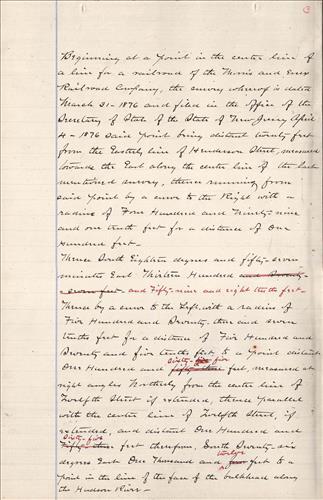 Beginning at a point in the center line of
a line for a railroad of the Morris and Essex
Railroad Company, the survey whereof is dated
March 31-1876 and filed in the office of the
Secretary of State of the State of New Jersey April
4-1876 said point being distant twenty feet
from the Easterly line of Henderson Street, measured
towards the East along the center line of the last
mentioned survey, thence running from
said point by a curve to the Right with a
radius of Four Hundred and Ninety-nine
and one tenth feet for a distance of One
Hundred feet-
Thence South Eighteen degrees and fifty-seven
minutes East Thirteen Hundred and Twenty
-seven feet and Fifty-nine and eight tenths feet-
Thence by a curve to the Left, with a radius of
Five Hundred and Seventy-three and seven
tenths feet for a distance of Five Hundred and
Twenty and five tenths feet to a point distant
sixty-five
One Hundred and feet, measured at
right angles Northerly from the center line of
Twelfth Street if extended, thence parallel
with the center line of Twelfth Street, if
extended, and distant One Hundred and
sixty-five
feet therefrom, South Seventy-six
twelve
degrees East One Thousand and feet to a
point in the line of the face of the bulkhead along
the Hudson River-